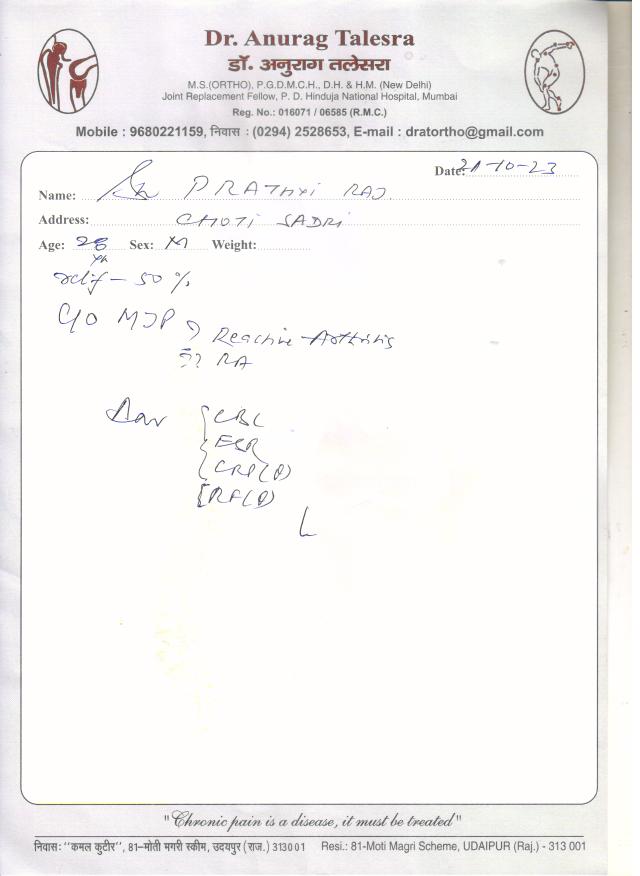 Dr. Anurag Talesra
डॉ. अनुराग तलेसरा
M.S.(ORTHO), P.G.D.M.C.H., D.H. & H.M. (New Delhi)
Joint Replacement Fellow, P. D. Hinduja National Hospital, Mumbai
Reg. No.: 016071 / 06585 (R.M.C.)
Mobile : 9680221159, निवास : (0294) 2528653, E-mail : dratortho@gmail.com
Date: 21-10-23
Name: PRATHVI RAJ
Address: CHOTI SADRI
Age: 28 Sex: M Weight:
yrs
relif - 50 %
C/O MJP
? Reactive Arthritis
?? RA
CBC
ESR
CRP(Q)
RF(Q)
"Chronic pain is a disease, it must be treated"
निवास: "कमल कुटीर", 81-मोती मगरी स्कीम, उदयपुर (राज.) 313001 Resi.: 81-Moti Magri Scheme, UDAIPUR (Raj.) - 313 001